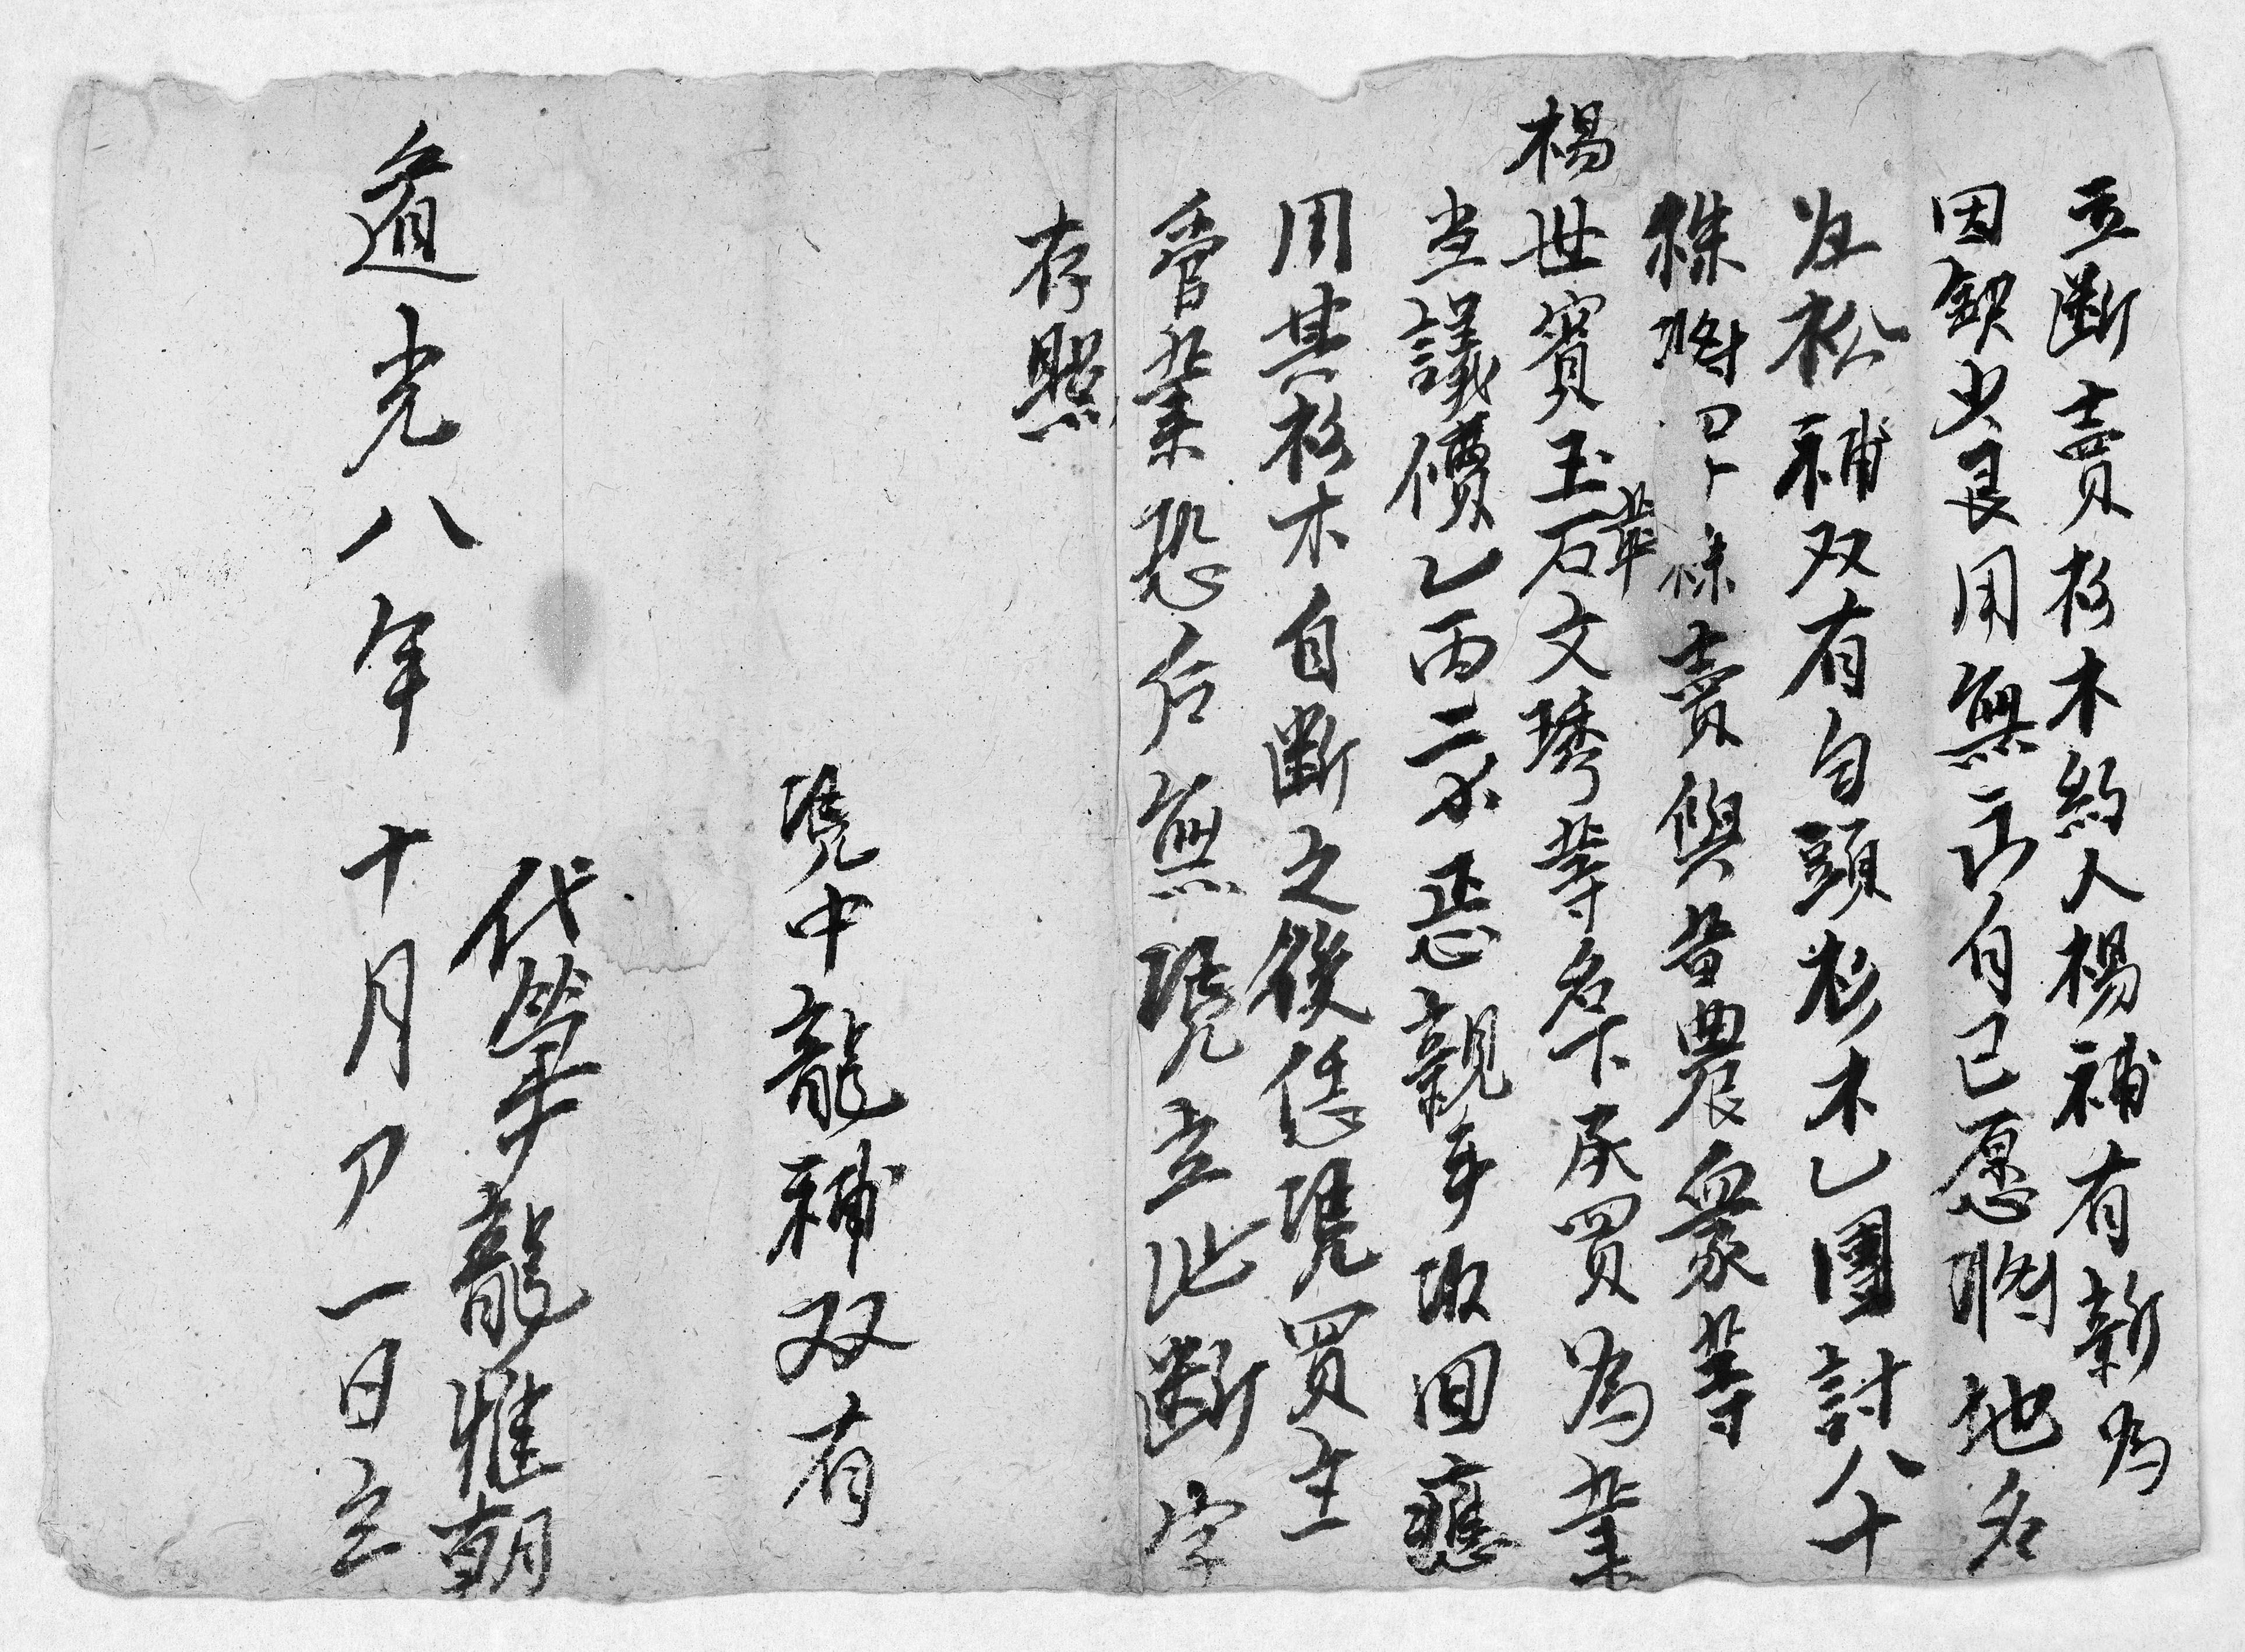 立斷賣杉木約人楊補有新為
因缺少艮用無出自己愿將地名
松補双有自頭杉木乙團討八十
株將四十株賣與昔農眾等
楊世賓玉石文琇等名下承買為業
輩
当議價乙両二錢正親手収回應
用其杉木自斷之後恁凴買主
管業恐后無凴立此斷字
存照
凴中龍補双有
代筆龍雅朝
道光八年十月一日立